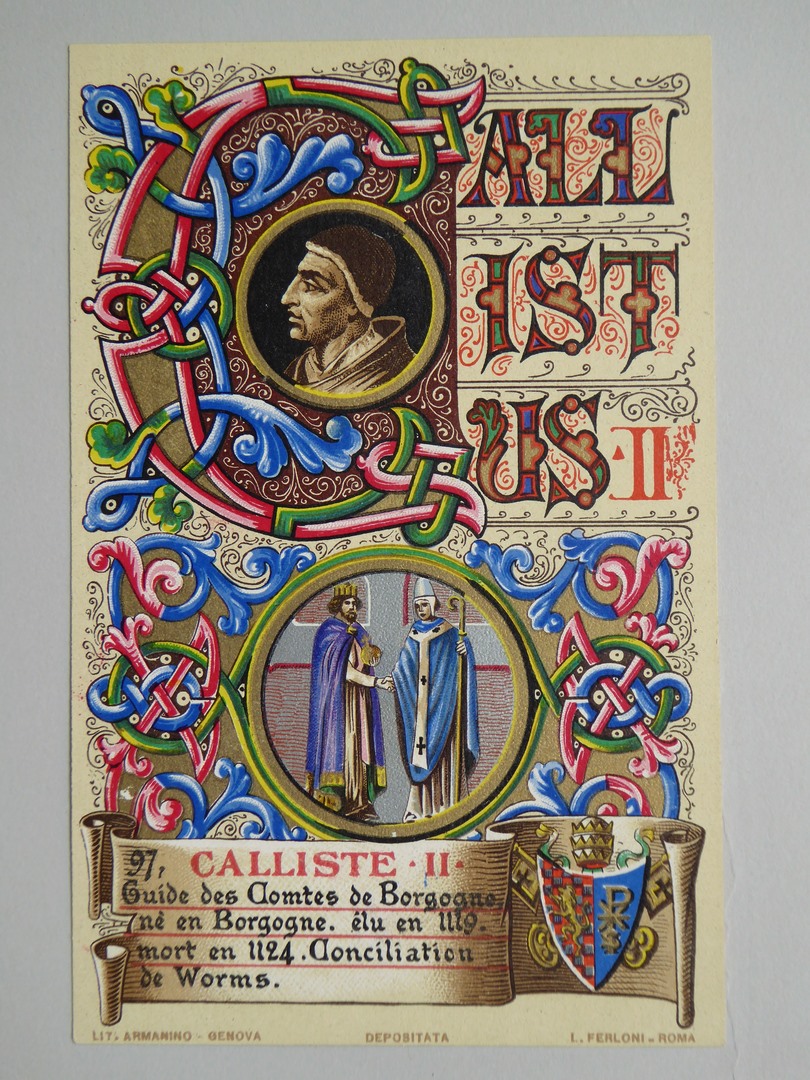 CALL
IST
US · II
97, CALLISTE · II ·
Guide des Comtes de Borgogne
né en Borgogne. élu en 1119.
mort en 1124. Conciliation
de Worms.
LIT. ARMANINO - GENOVA DEPOSITATA L. FERLONI - ROMA